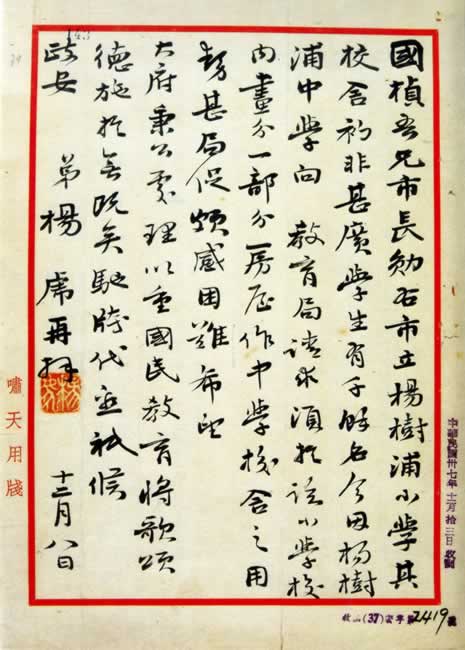 國楨吾兄市長勛右市立楊樹浦小學其
校舍初非甚廣學生有千餘名今因楊樹
浦中學向 教育局請求須於該小學校
內畫分一部分房屋作中學校舍之用
勢甚局促頗感困難希望
大府秉公處理以重國民教育將歌頌
德施於無既矣馳牋代面祇候
政安 弟楊虎再拜 十二月八日
嘯天用牋
中華民國卅七年十二月拾三日收到
(37)字第2419號